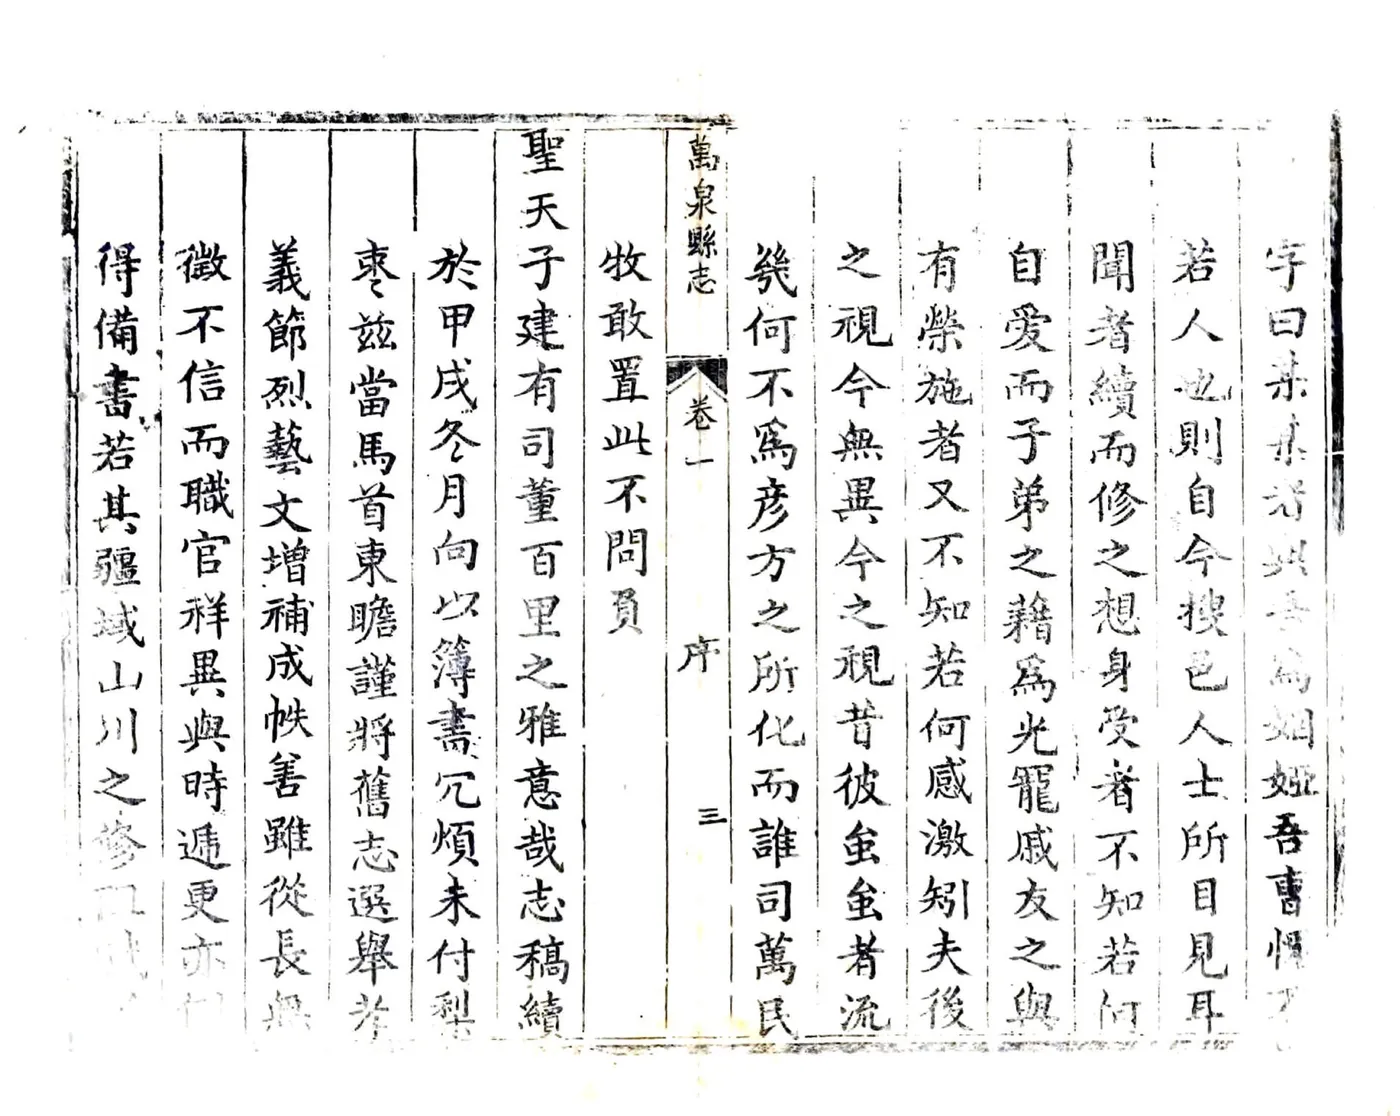 字曰某某者與吾爲姻婭吾曹惟不
若人也則自今搜邑人士所目見耳
聞者續而修之想身受者不知若何
自爱而子弟之藉爲光寵戚友之與
有榮施者又不知若何感激矧夫後
之視今無異今之視昔彼蚩蚩者流
幾何不爲彦方之所化而誰司萬民
萬泉縣志 卷一 序 三
牧敢置此不問負
聖天子建有司董百里之雅意哉志稿續
於甲戌冬月向以簿書冗煩未付梨
枣兹當馬首東瞻謹將舊志選舉孝
義節烈藝文增補成帙善雖從長無
徵不信而職官祥異與時遞更亦
得備書若其疆域山川之修